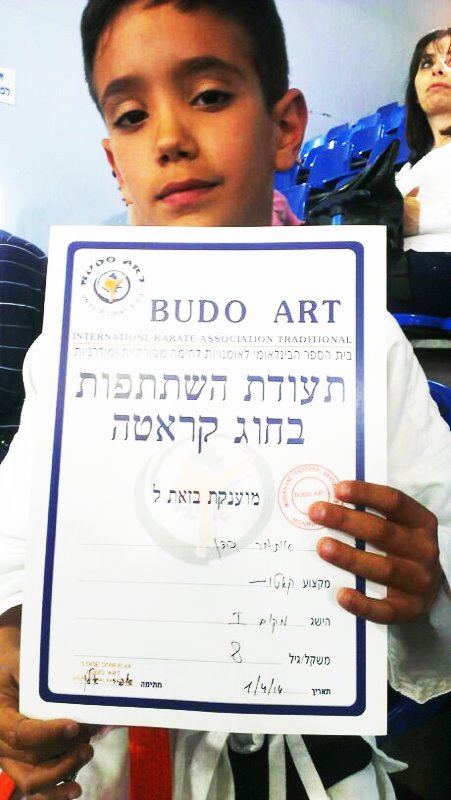 BUDO ART
BUDO ART
INTERNATIONL KARATE ASSOCIATION TRADITIONAL
בית הספר הבינלאומי לאומנויות לחימה מסורתיות ומודרניות
תעודת השתתפות
בחוג קראטה
מוענקת בזאת ל
BUDO ART
כהן
מקצוע קאטו
הישג מקום I
משקל/גיל 8
BUDO ART
תאריך 1/4/14 חתימה